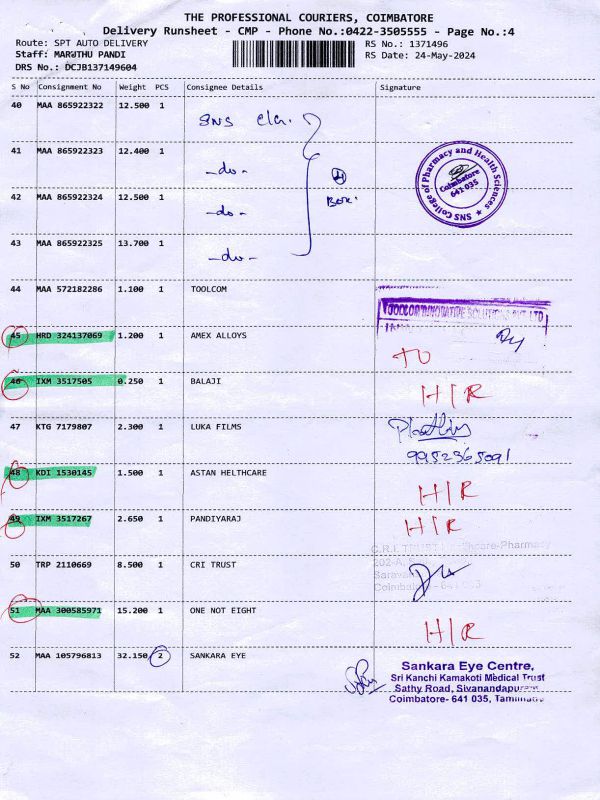 THE PROFESSIONAL COURIERS, COIMBATORE
Delivery Runsheet - CMP - Phone No.:0422-3505555 - Page No.:4
Route: SPT AUTO DELIVERY RS No.: 1371496
Staff: MARUTHU PANDI RS Date: 24-May-2024
DRS No.: DCJB137149604
S No Consignment No Weight PCS Consignee Details Signature
40 MAA 865922322 12.500 1 SNS
41 MAA 865922323 12.400 1 -do-
42 MAA 865922324 12.500 1 -do-
Box.
SNS College of Pharmacy and Health Sciences
Coimbatore
641 035
43 MAA 865922325 13.700 1 -do-
44 MAA 572182286 1.100 1 TOOLCOM
45 HRD 324137069 1.200 1 AMEX ALLOYS
46 IXM 3517505 0.250 1 BALAJI H/R
47 KTG 7179807 2.300 1 LUKA FILMS
9952365091
48 KDI 1530145 1.500 1 ASTAN HELTHCARE H/R
49 IXM 3517267 2.650 1 PANDIYARAJ H/R
C.R.I. TRUST
50 TRP 2110669 8.500 1 CRI TRUST
51 MAA 300585971 15.200 1 ONE NOT EIGHT H/R
52 MAA 105796813 32.150 2 SANKARA EYE Sankara Eye Centre,
Sri Kanchi Kamakoti Medical Trust
Sathy Road, Sivanandapuram,
Coimbatore- 641 035, Tamilnadu